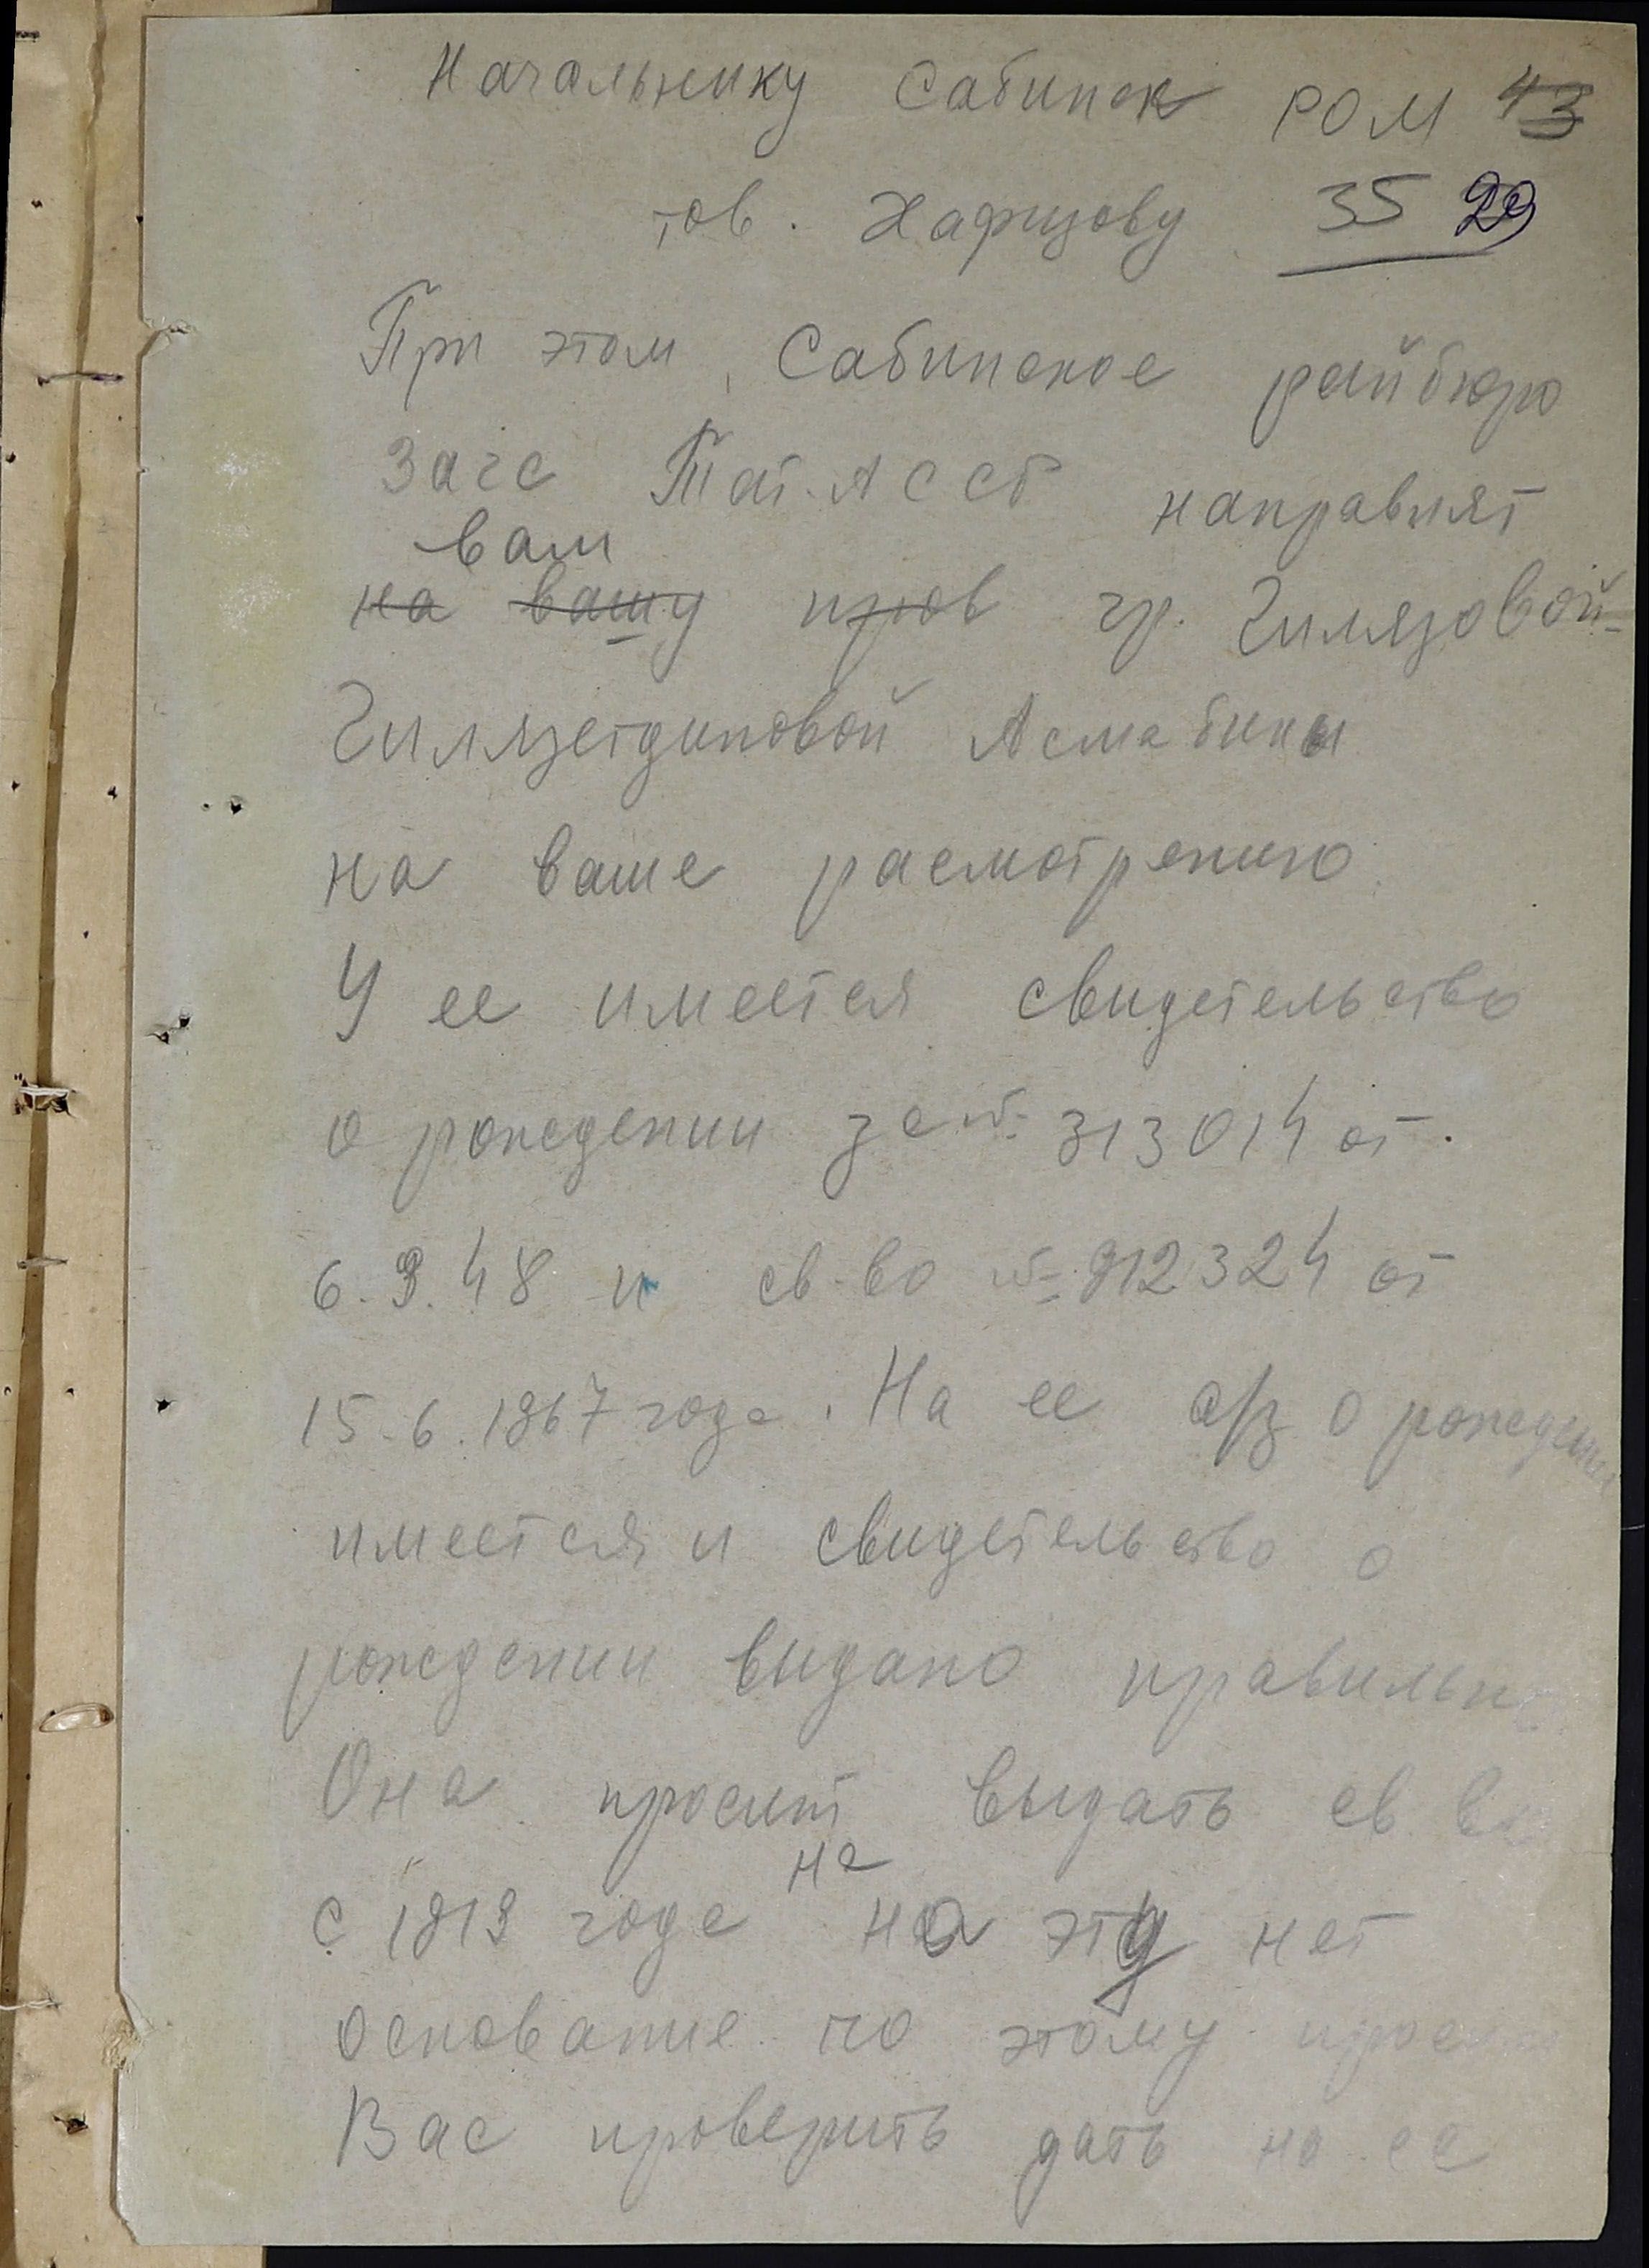 Начальнику Сабинск РОМ 43
тов. Хафизову 35 29
При этом Сабинское райбюро
Загс Тат.АССР направлят
вам
на вашу пров гр. Гилязовой-
Гилязетдиновой Асмабики
на ваше расмотрению.
У ее имеется свидетельство
о рождении за № 313014 от.
6.9.48 и св-во № 912324 от
15.6.1967 года. На ее а/з о рождении
имеется и свидетельство о
рождении выдано правильно
Она просит выдать св во
с 1919 года на эту нет
основание по этому просим
Вас проверить дать на ее